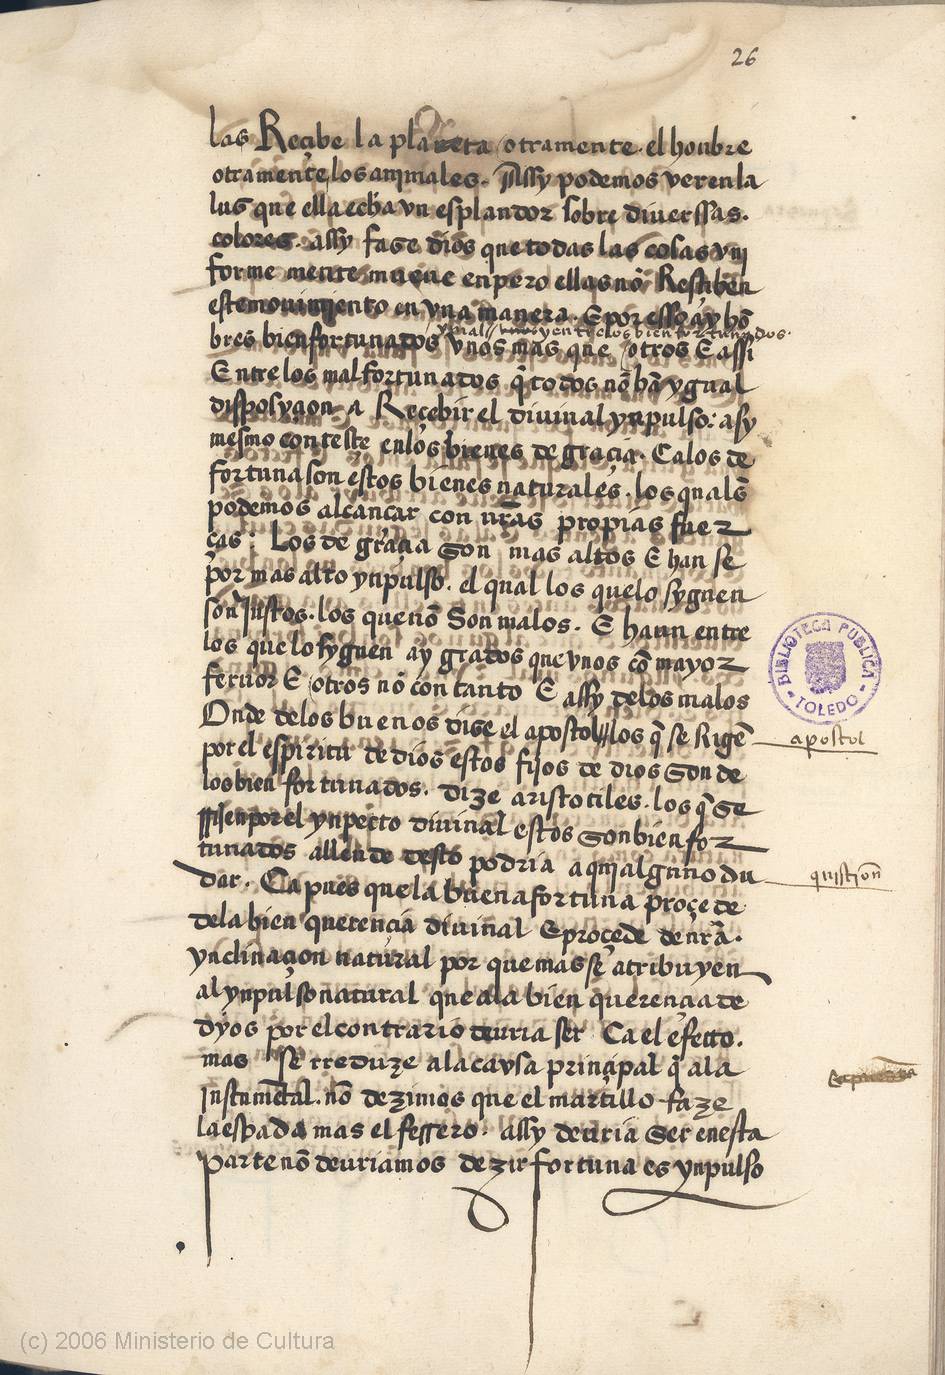 26
las Reçibe la planeta otramente el honbre
otramente los animales. Assy podemos ver en la
lus que ella echa vn esplandor sobre diuerssas.
colores. assy fase dios que todas las cosas vni
forme mente mueue enpero ellas nõ Resçiben
este mouimiento en vna manera. E por esso ay hõ
ygual
bres bien fortunados vnos mas que otros E assi
Entre los mal fortunados q̃ todos nõ hã ygual
disposyçion a Reçebir el diuinal ynpulso: asy
mesmo conteste en los bienes de graçia. Ca los de
fortuna son estos bienes naturales. los quales
podemos alcançar con nr̃as propias fuer
ças: Los de graçia son mas altos E han se
por mas alto ynpulso. el qual los que lo syguen
son Justos. los que nõ Son malos. E haun entre
los que lo syguen ay grados que vnos cõ mayor
feruor E otros nõ con tanto E assy de los malos
Onde de los buenos dise el apostol los q̃ se Rigẽ
apostol
por el espiritu de dios estos fijos de dios son de
los bien fortunados. dize aristotiles. los q̃ se
por el ynpeto diuinal estos son bien for
tunados allende desto podria aqui alguno du
quistion
dar. Ca pues que la buena fortuna proçede
de la bien querençia diuinal E proçede de nr̃a.
ynclinaçion natural por que mas se atribuyen
al ynpulso natural que a la bien querençia de
dyos por el contrario deuria ser Ca el efetto.
mas se rreduze a la cavsa prinçipal q̃ a la
Instrumẽtal. nõ dezimos que el martillo faze
la espada mas el ferrero. assy deuria ser en esta
parte nõ deuriamos dezir fortuna es ynpulso
BIBLIOTECA PUBLICA
TOLEDO
(c) 2006 Ministerio de Cultura